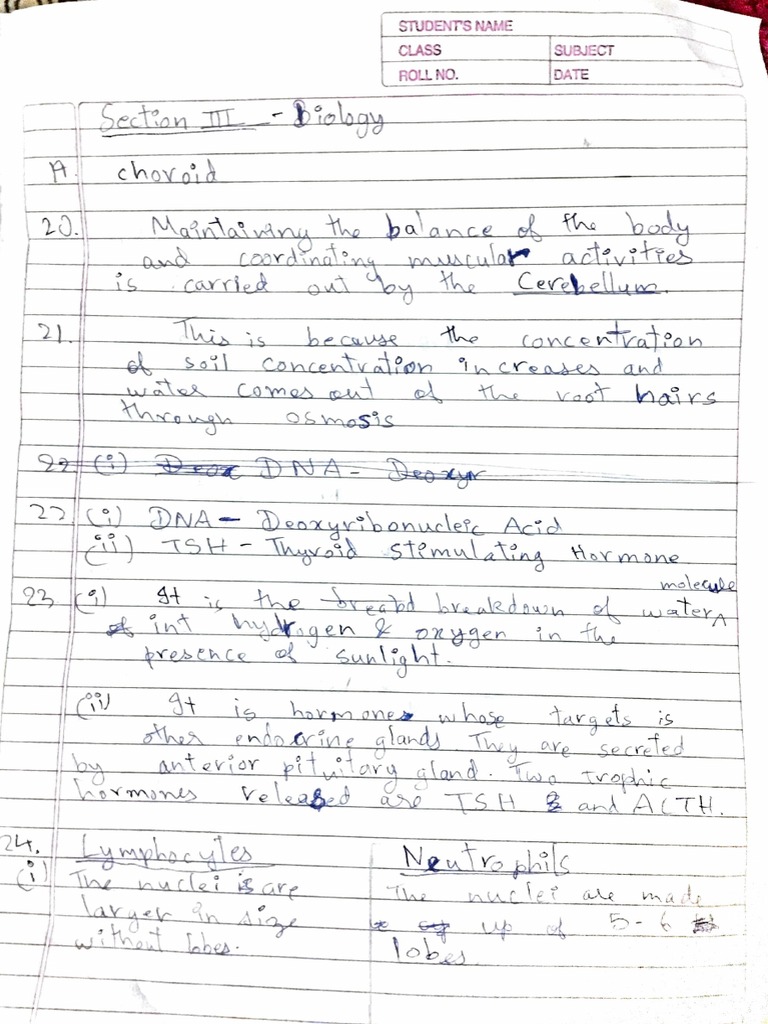 STUDENT'S NAME
CLASS SUBJECT
ROLL NO. DATE
Section III - Biology
19. choroid
20. Maintaining the balance of the body
and coordinating muscular activities
is carried out by the Cerebellum.
21. This is because the concentration
of soil concentration increases and
water comes out of the root hairs
through osmosis
22 (i) DNA - Deoxyr
22 (i) DNA - Deoxyribonucleic Acid
(ii) TSH - Thyroid Stimulating Hormone
23 (i) It is the breakdown of water molecule
int hydrogen & oxygen in the
presence of sunlight.
(ii) It is hormones whose targets is
other endocrine glands They are secreted
by anterior pituitary gland. Two trophic
hormones released are TSH and ACTH.
24. Lymphocytes Neutrophils
(i) The nuclei are The nuclei are made
larger in size up of 5-6
without lobes. lobes